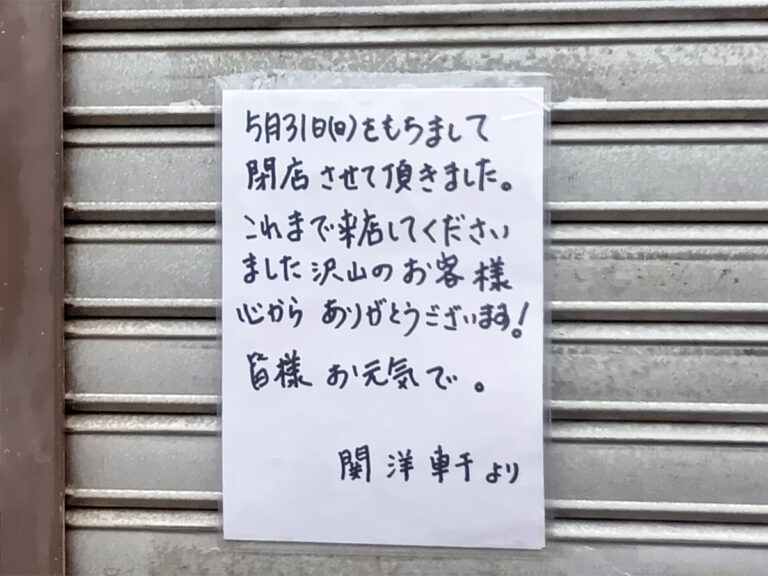 5月31日(日)をもちまして
閉店させて頂きました。
これまで来店してください
ました沢山のお客様
心から ありがとうございます!
皆様 お元気で。
関洋軒より